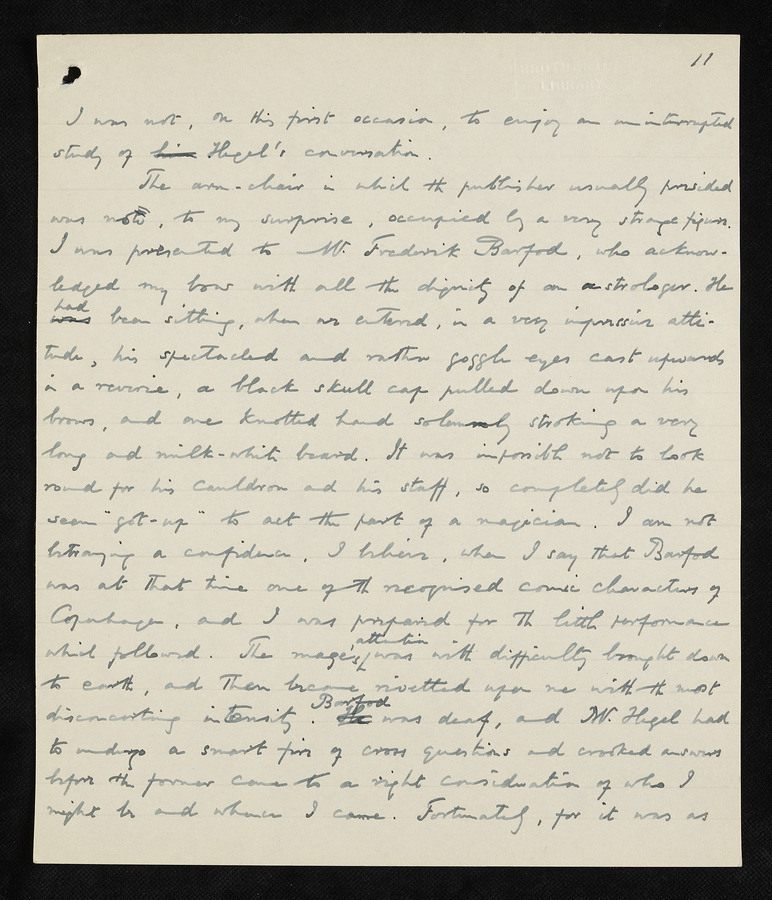 11
BROTHERTON
LIBRARY
I was not, on this first occasion, to enjoy an uninterrupted
study of his Hegel's conversation.
The arm-chair in which the publisher usually presided
was now, to my surprise, occupied by a very strange figure.
I was presented to Mr. Frederik Barfod, who acknow-
ledged my bow with all the dignity of an astrologer. He
had
was been sitting, when we entered, in a very impressive atti-
tude, his spectacled and rather goggle eyes cast upwards
in a reverie, a black skull cap pulled down upon his
brows, and one knotted hand solemnly stroking a very
long and milk-white beard. It was impossible not to look
round for his cauldron and his staff, so completely did he
seem "got-up" to act the part of a magician. I am not
betraying a confidence, I believe, when I say that Barfod
was at that time one of the recognised comic characters of
Copenhagen, and I was prepared for the little performance
which followed. The mage's was with difficulty brought down
attention
to earth, and then became rivetted upon me with the most
Barfod
disconcerting intensity. He was deaf, and Mr. Hegel had
to undergo a smart fire of cross questions and crooked answers
before the former came to a right consideration of who I
might be and whence I came. Fortunately, for it was as